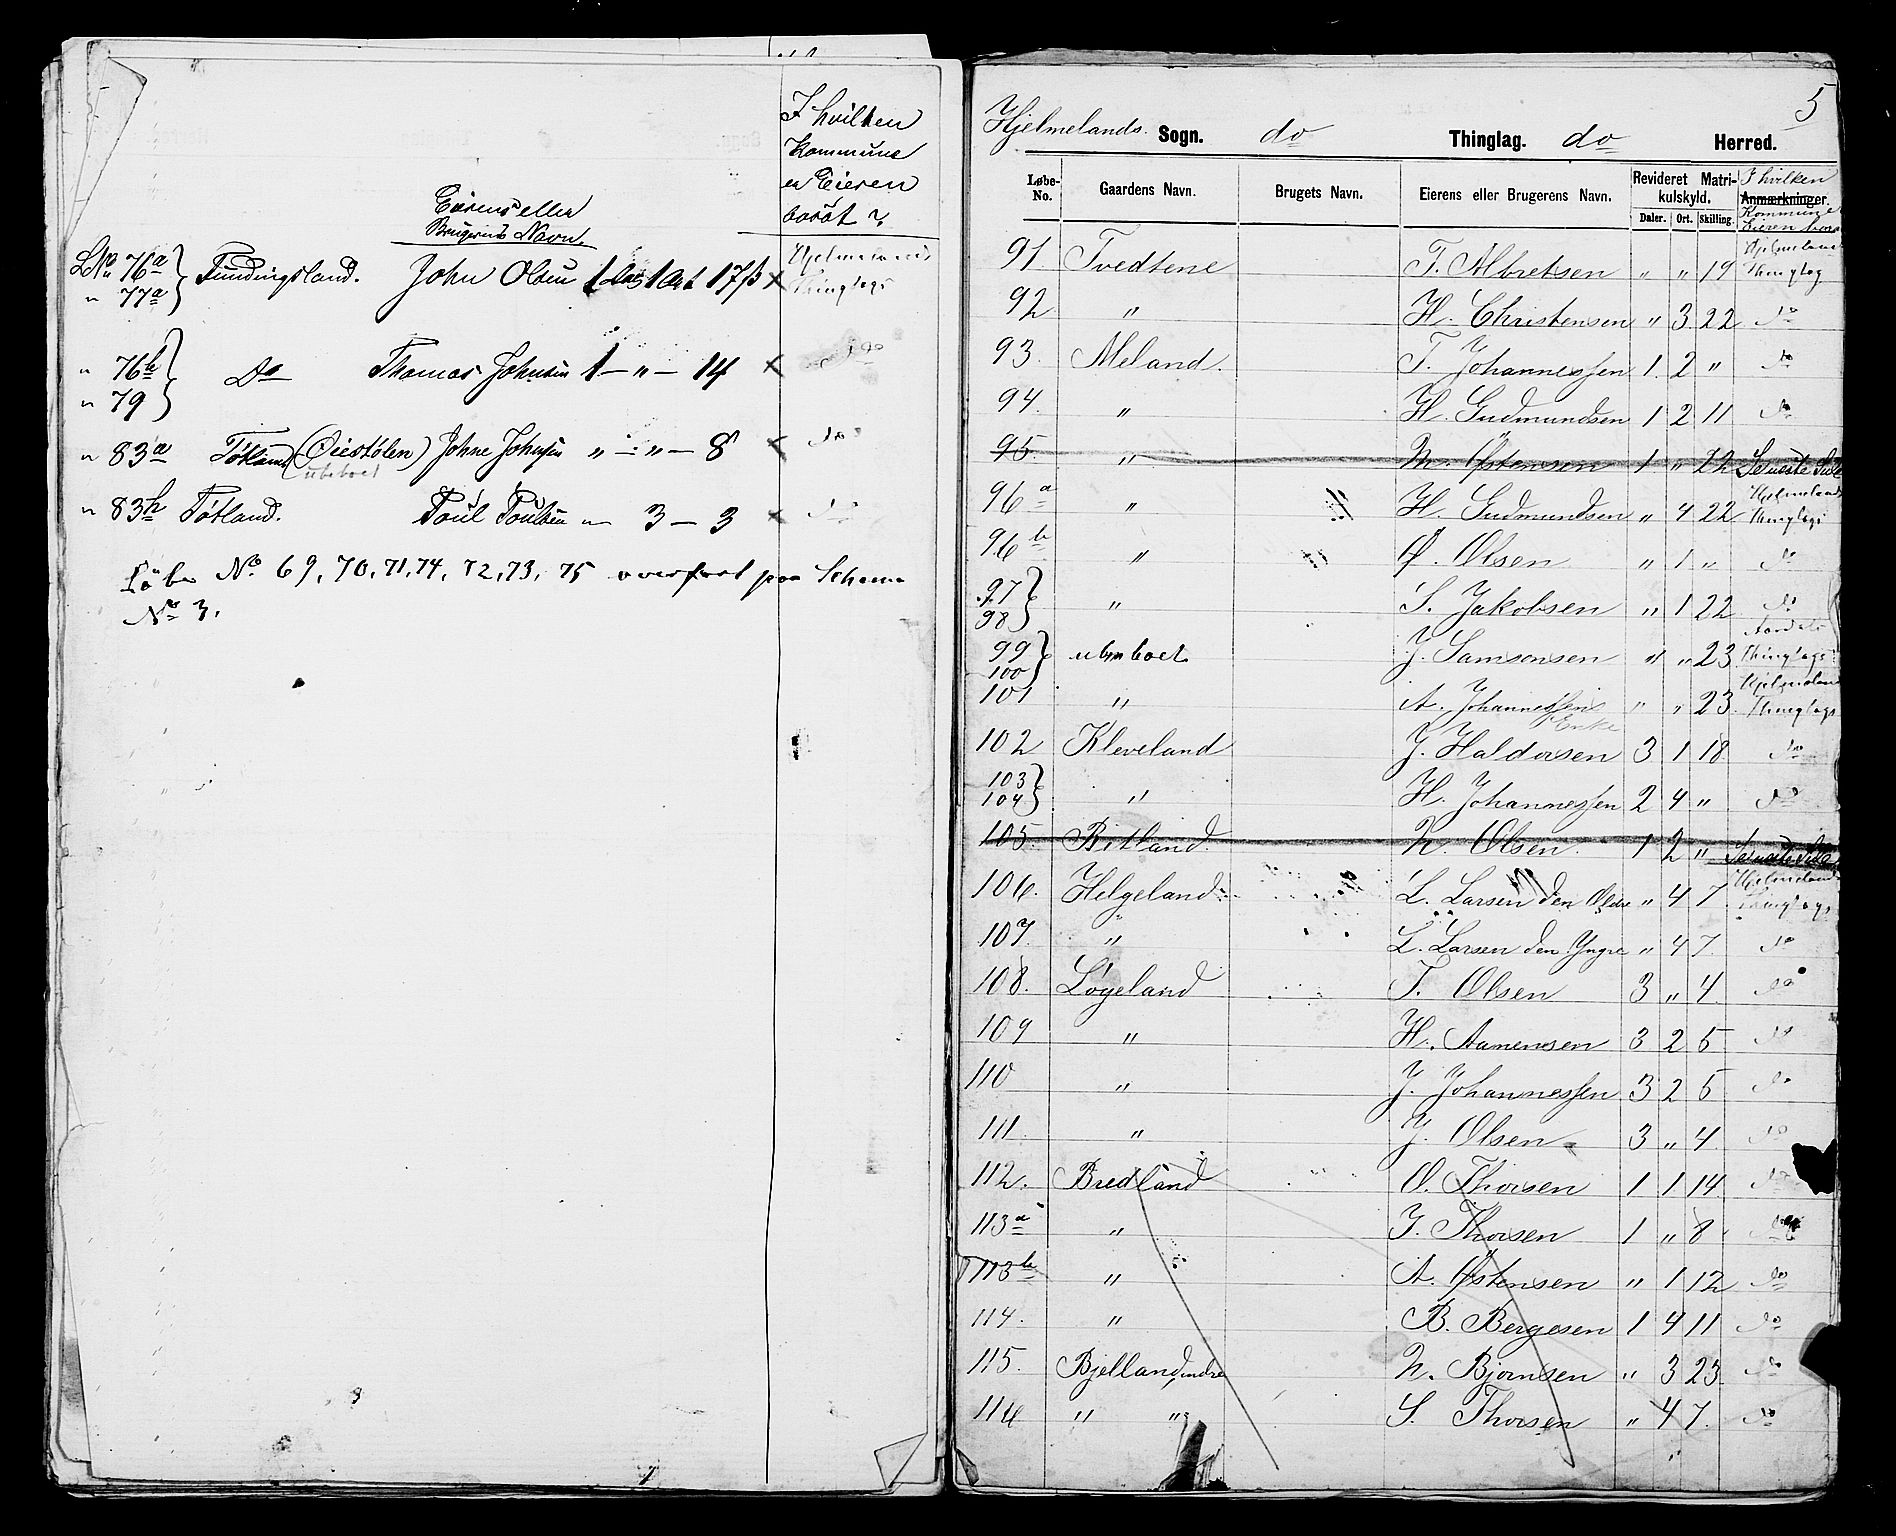 I hvilken
Kommune
er Eieren
bosat?
Eierens eller
Brugerens Navn.
LNo 76a } Fundingsland. John Olsen 1 Dal 1 Ort 17 ß x Hjelmelands
" 77a Thinglags
" 76b } Do Thomas Johnsen 1 — " — 14 x do
" 79
" 83a Tøtland (Qiestølen) Johne Johnsen " — " — 8 x do
ubeboet
" 83b Tøtland. Poul Poulsen " 3 — 3 x do
Løbe No 69, 70, 71, 74, 72, 73, 75 overført paa Schema
No 3.
5
Hjelmelands Sogn. do Thinglag. do Herred.
Løbe-No. Gaardens Navn. Brugets Navn. Eierens eller Brugerens Navn. Revideret Matrikulskyld. Anmærkninger.
Daler. Ort. Skilling.
I hvilken
Kommune
Eieren bor
91 Tvedtene T. Albretsen " " 19 Hjelmelands Thinglag
92 " H. Christensen " 3 22 do
93. Meland. T. Johannessen 1 2 " do
94. " H. Gudmundsen 1 2 11 do
95. " M. Østensen 1 " 22 Seneste Side
96a " H. Gudmundsen " 4 22 Hjelmelands Thinglags
96b " Ø. Olsen " 1 " do
97 } " S. Jakobsen " 1 22 do
98
99 } ubeboet J. Samsonsen " " 23 Aardals Thinglags
100
101 " A. Johannessens Enke " " 23 Hjelmeland Thinglags
102 Kleveland J. Haldorsen 3 1 18 do
103 } " H. Johannessen 2 4 " do
104
105 Ritland. N. Olsen. 1 2 " Seneste Side
106. Helgeland L. Larsen den Ældre " 4 7 Hjelmelands Thinglags
107. " L. Larsen den Yngre " 4 7. do
108. Løgeland T. Olsen 3 " 4 do
109 " H. Aamensen 3 2 5 do
110 " J. Johannessen 3 2 5 do
111. " J. Olsen 3 " 4. do
112. Bredland O. Thorsen 1 1 14 do
113a " J. Thorsen 1 " 8 do
113b " A. Østensen " 1 12 do
114. " B. Bergesen 1 4 11 do
115. Bjelland, indre N. Bjørnsen " 3 23 do
116 " " S. Thorsen " 4 7. do